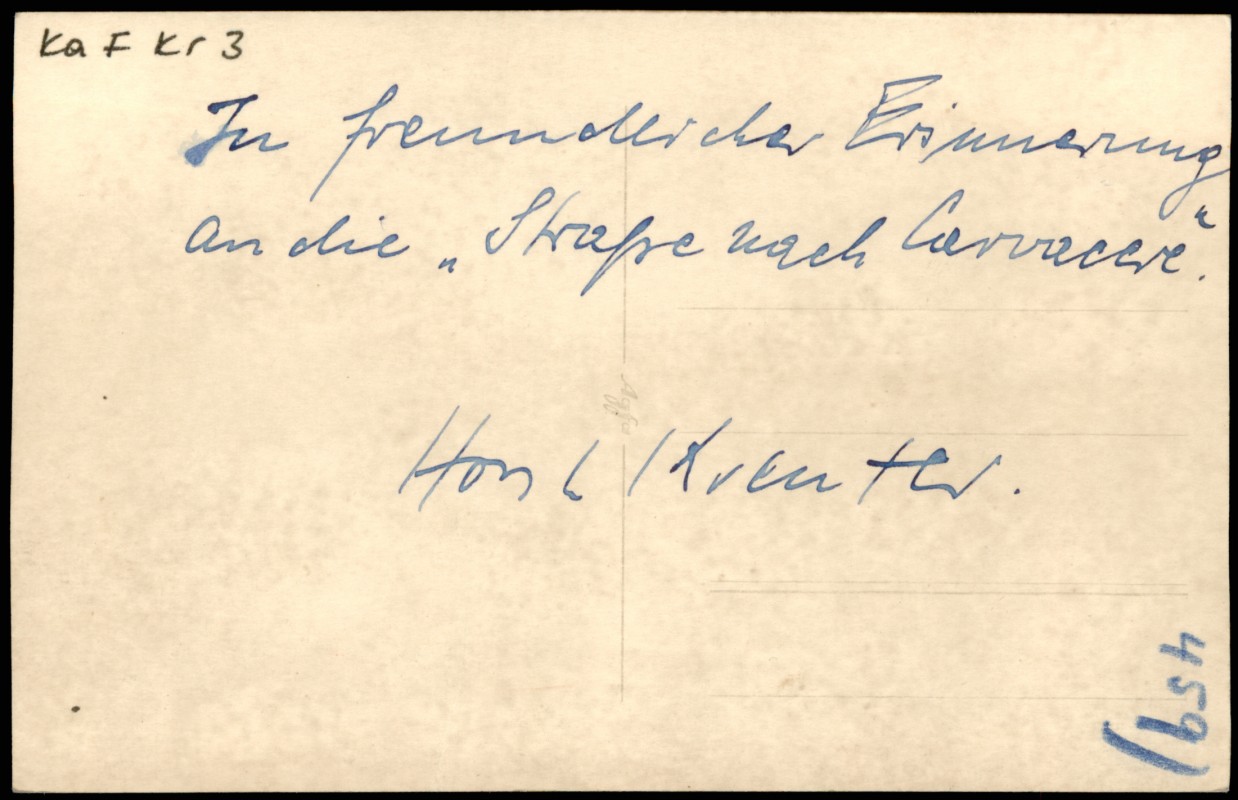 Ka F Kr 3
In freundlicher Erinnerung
an die „Straße nach Carvacere“.
Agfa
Horst Kreuter.